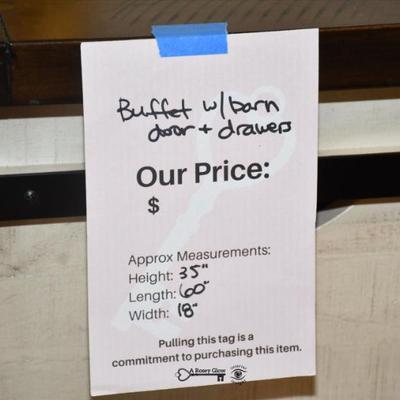 Buffet w/barn
door + drawers
Our Price:
$
Approx Measurements:
Height: 35"
Length: 60"
Width: 18"
Pulling this tag is a
commitment to purchasing this item.
A Rosey Glow